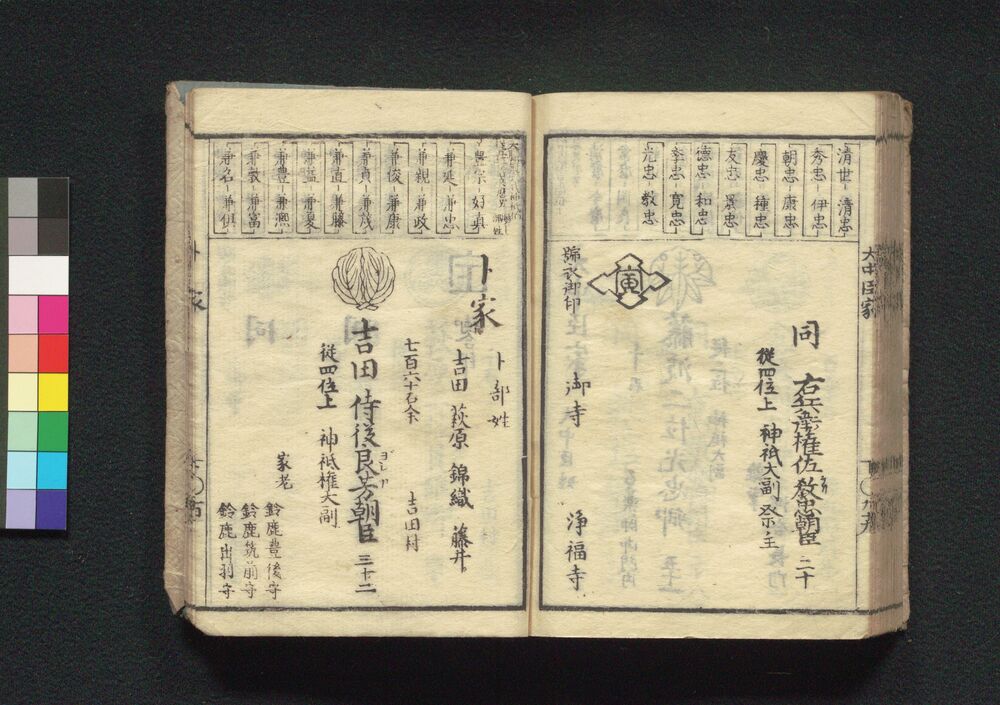 清世 清忠
秀忠 伊忠
朝忠 康忠
慶忠 種忠
友忠 景忠
德忠 和忠
季忠 寛忠
光忠 教忠
大中臣家
同 右兵衛権佐教忠朝臣 二十
從四位上 神祇大副 祭主
寅
御寺 浄福寺
豊宗 好真
兼延 兼忠
兼親 兼政
兼俊 兼康
兼貞 兼茂
兼直 兼藤
兼益 兼夏
兼豊 兼凞
兼敦 兼富
兼名 兼倶
卜家
卜部姓
吉田 萩原 錦織 藤井
七百六十石余 吉田村
吉田侍從良芳朝臣 三十二
ヨシ
從四位上 神祇権大副
家老
鈴鹿豊後守
鈴鹿筑前守
鈴鹿出羽守
卜家